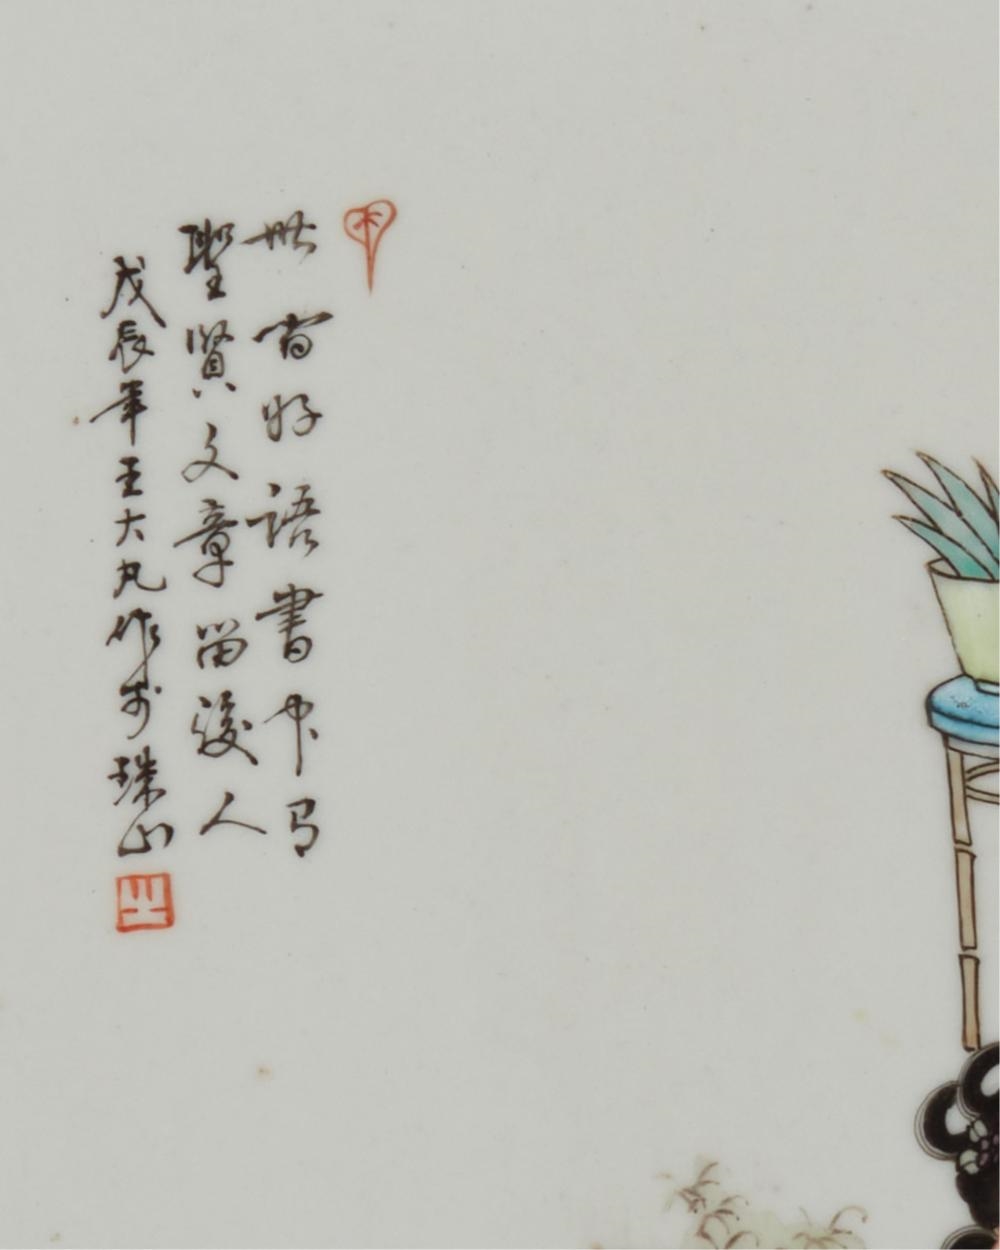 世間好語書中
聖賢文章留後人
戊辰年王大凡作於珠山